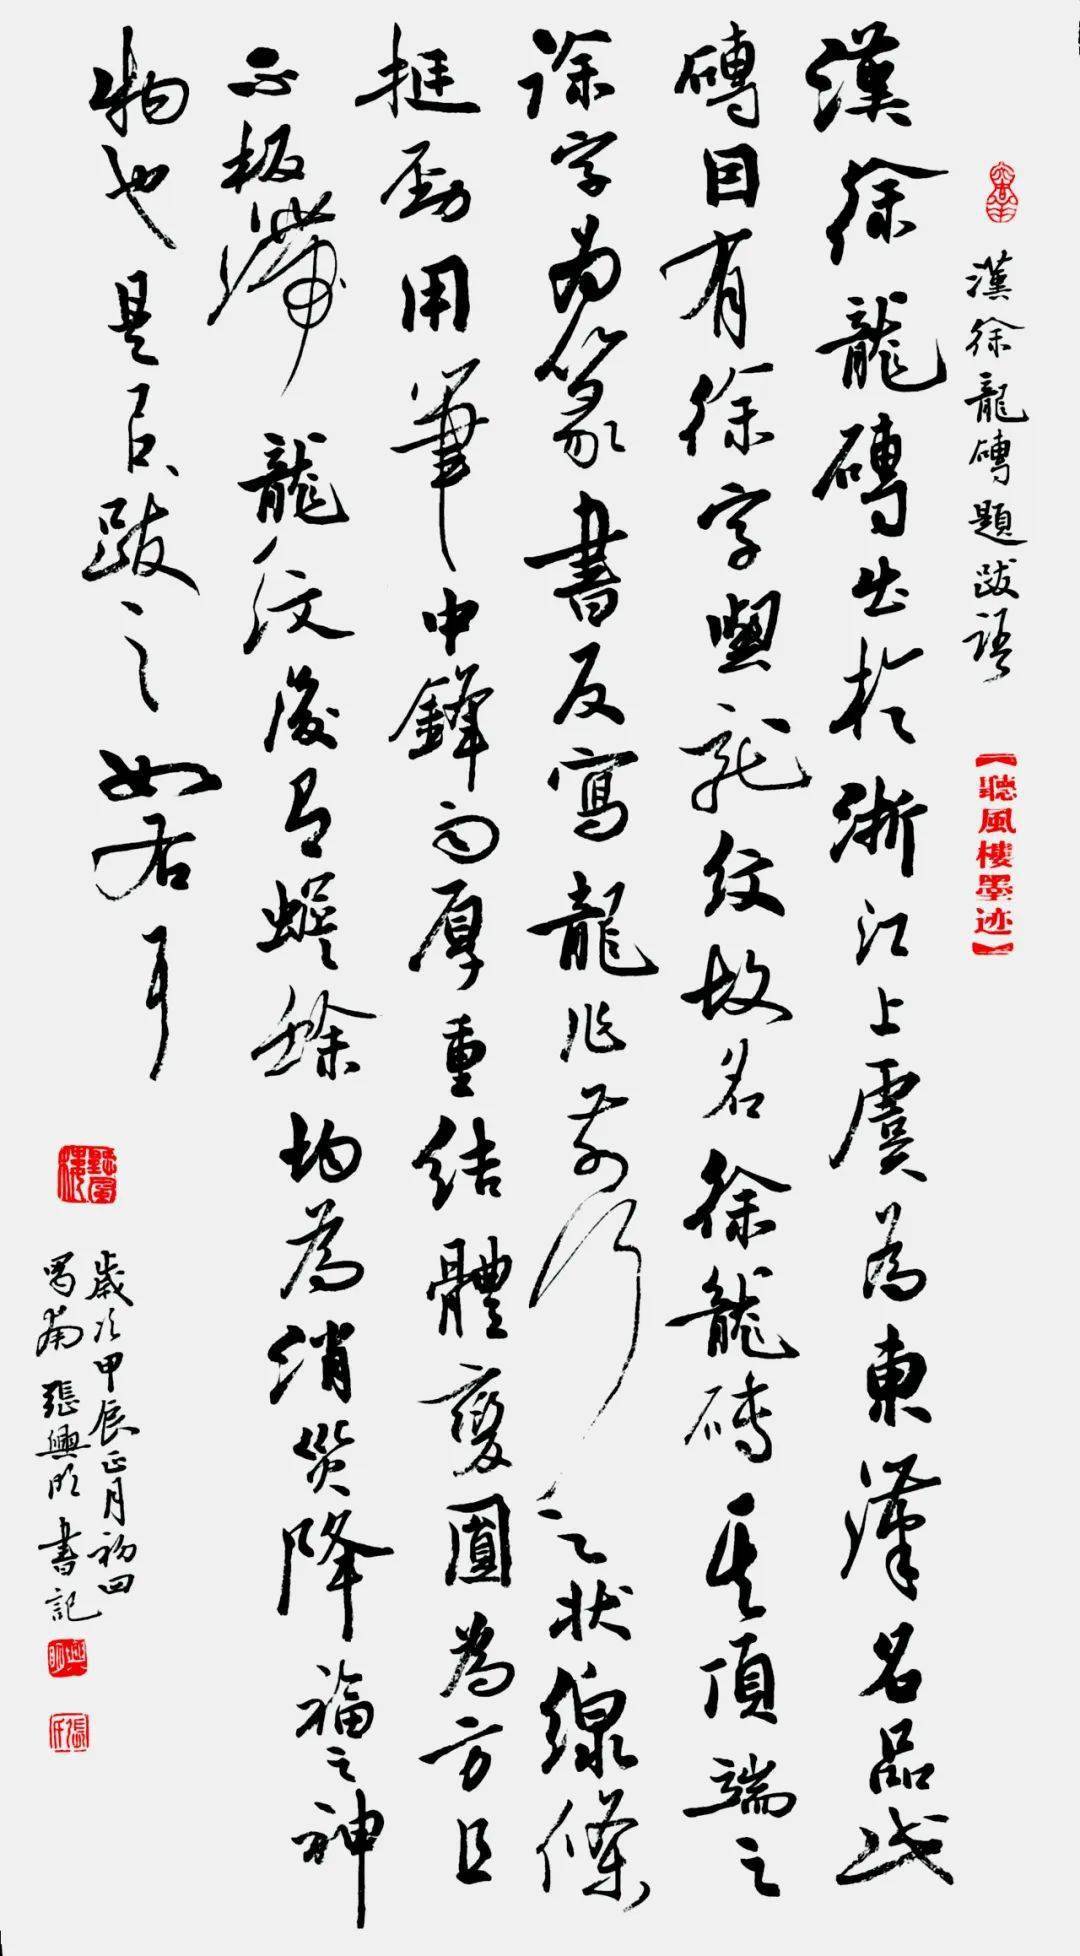 漢徐龍磚題跋語
【聽風樓墨迹】
漢徐龍磚出於浙江上虞為東漢名品此
磚因有徐字與龍紋故名徐龍磚其頂端之
徐字為篆書反寫龍作前行之狀線條
挺勁用筆中鋒而厚重結體變圓為方且
不板滯龍紋後有蟾蜍均為消災降福之神
物也是以跋之如右耳
歲次甲辰正月初四
蜀南張興明書記
聽風樓
興明
張氏